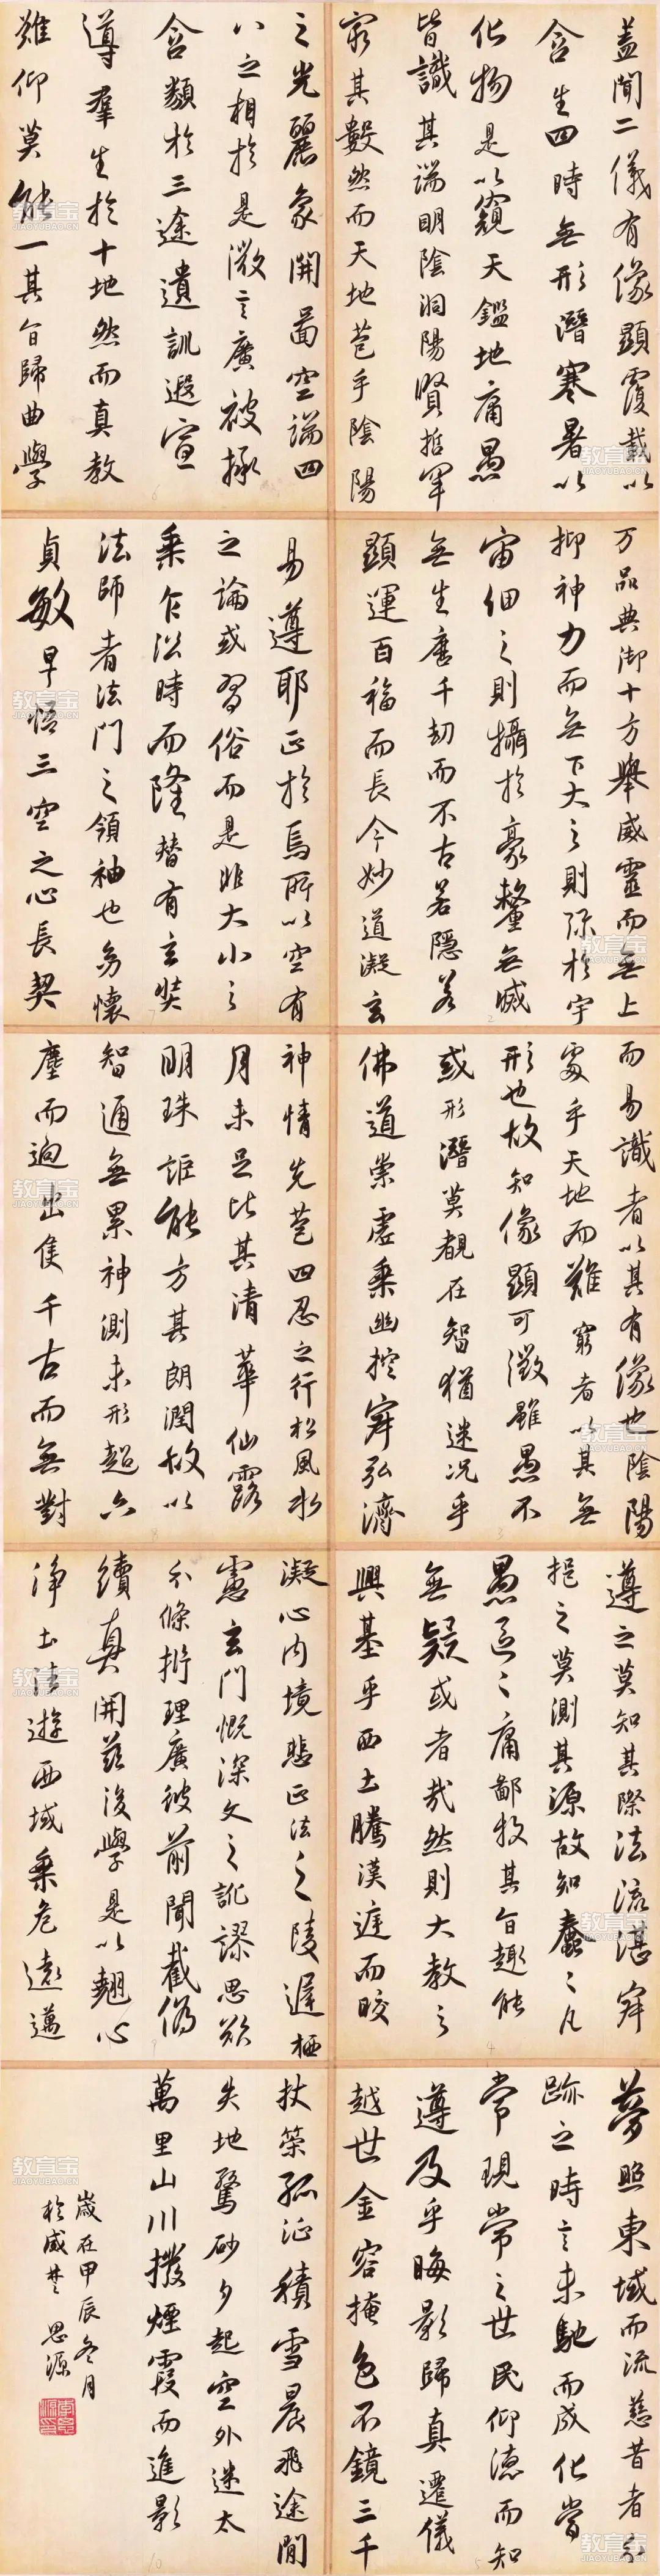 盖聞二儀有像顯覆載以
含生四時無形潛寒暑以
化物是以窺天鑑地庸愚
皆識其端明陰洞陽賢哲罕
窮其數然而天地苞乎陰陽
万品典御十方舉威靈而無上
抑神力而無下大之則弥於宇
宙細之則攝於豪釐無滅
無生歷千劫而不古若隱若
顯運百福而長今妙道凝玄
而易識者以其有像也陰陽
處乎天地而難窮者以其無
形也故知像顯可徵雖愚不
或形潛莫覩在智猶迷况乎
佛道崇虛乘幽控寂弘濟
遵之莫知其際法流湛寂
挹之莫測其源故知蠢々凡
愚區々庸鄙投其旨趣能
無疑或者哉然則大教之
興基乎西土騰漢庭而皎
夢照東域而流慈昔者分
跡之時言未馳而成化當
常現常之世民仰德而知
遵及乎晦影歸真遷儀
越世金容掩色不鏡三千
之光麗象開圖空端四
八之相於是微言廣被拯
含類於三途遺訓遐宣
導羣生於十地然而真教
難仰莫能一其旨歸曲學
易遵耶正於焉所以空有
之論或習俗而是非大小之
乘乍沿時而隆替有玄奘
法師者法門之領袖也幼懷
貞敏早悟三空之心長契
神情先苞四忍之行松風水
月未足比其清華仙露
明珠詎能方其朗潤故以
智通無累神測未形超六
塵而迥出隻千古而無對
凝心內境悲正法之陵遲栖
慮玄門慨深文之訛謬思欲
分條析理廣彼前聞截偽
續真開茲後學是以翹心
淨土法遊西域乘危遠邁
杖策孤征積雪晨飛途閒
失地驚砂夕起空外迷太
萬里山川撥煙霞而進影
歲在甲辰冬月
於威楚 思源
教育宝
JIAOYUBAO.CN